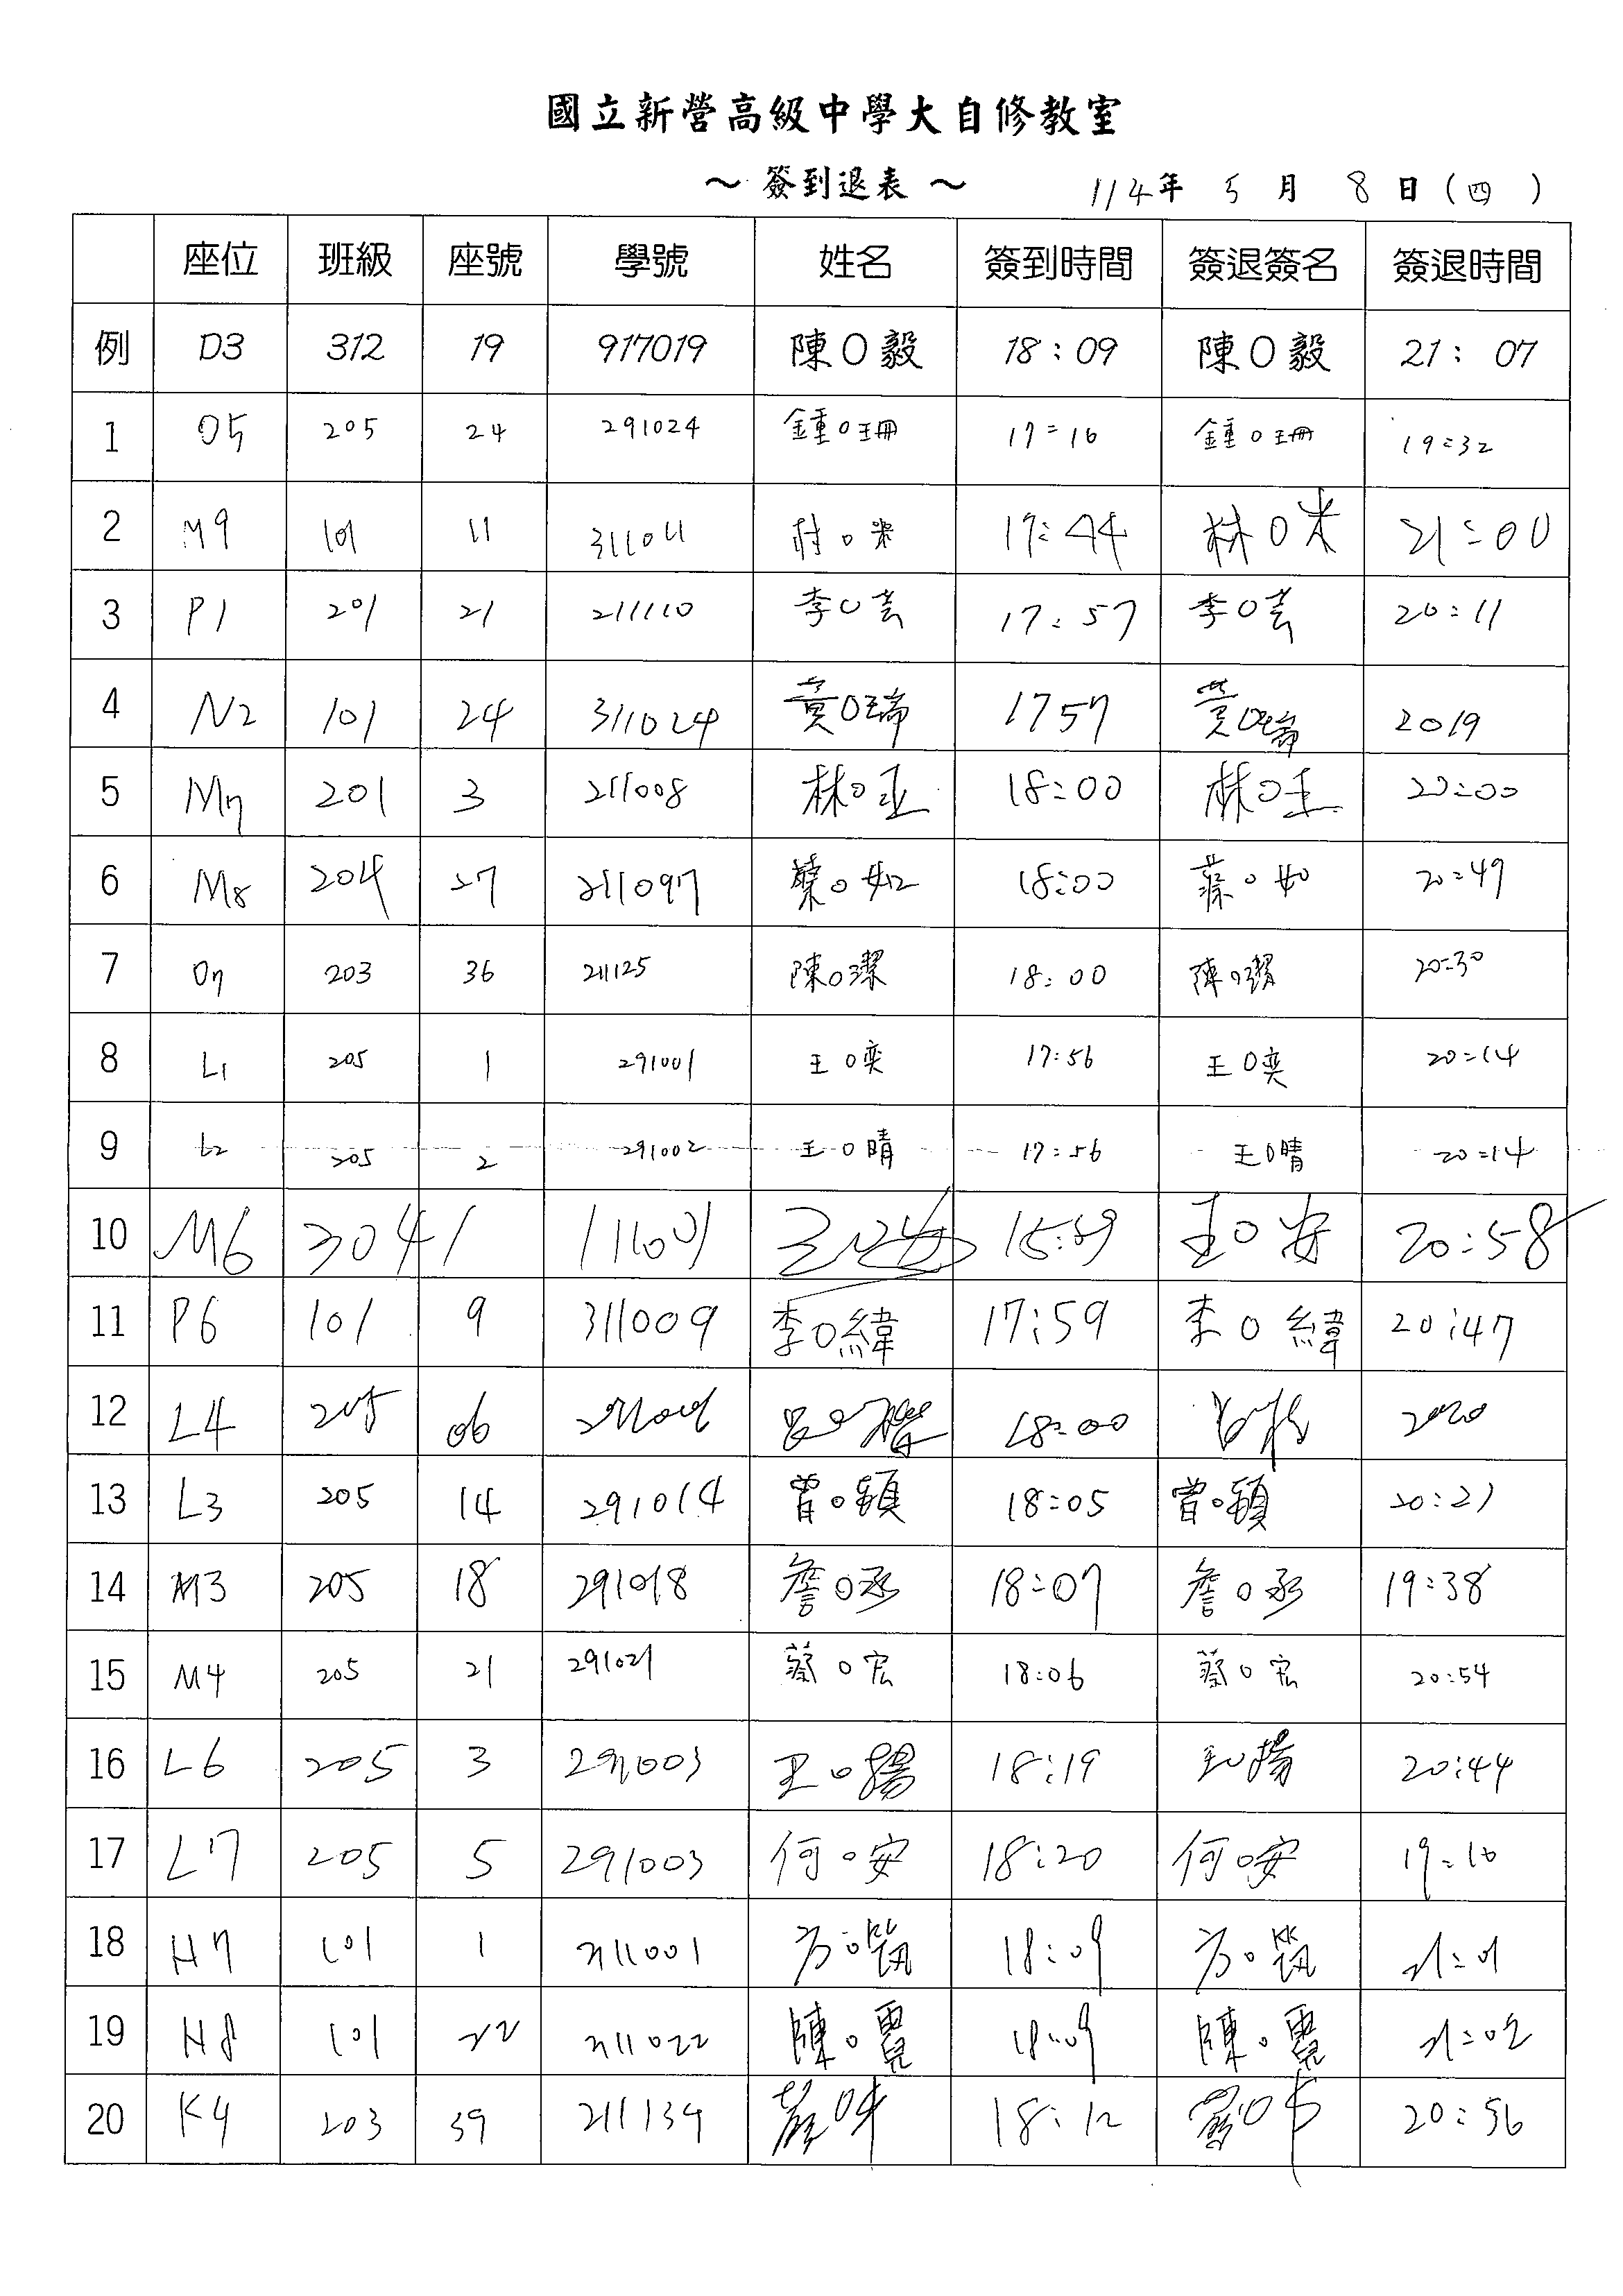 國立新營高級中學大自修教室
～簽到退表～ 114年 5月 8日(四)
座位 班級 座號 學號 姓名 簽到時間 簽退簽名 簽退時間
例 D3 312 19 917019 陳O毅 18:09 陳O毅 21:07
1 O5 205 24 291024 鍾O珊 17:16 鍾O珊 19:32
2 M9 101 11 311011 林O米 17:44 林O米 21:00
3 P1 201 21 211110 李O芸 17:57 李O芸 20:11
4 N2 101 24 311024 黃O瑞 1757 黃O瑞 2019
5 M7 201 3 211008 林O 18:00 林O 20:00
6 M8 204 27 211097 蔡O如 18:00 蔡O如 20:49
7 O7 203 36 211125 陳O潔 18:00 陳O潔 20:30
8 L1 205 1 291001 王O奕 17:56 王O奕 20:14
9 L2 205 2 291002 王O晴 17:56 王O晴 20:14
10 M6 304 1 111001 王O安 王O安 20:58
11 P6 101 9 311009 李O緯 17:59 李O緯 20:47
12 L4 205 06 18:00 2020
13 L3 205 14 291014 曾O穎 18:05 曾O穎 20:21
14 M3 205 18 291018 詹O丞 18:07 詹O丞 19:38
15 M4 205 21 291021 蔡O宏 18:06 蔡O宏 20:54
16 L6 205 3 291003 王O揚 18:19 王O揚 20:44
17 L7 205 5 291003 何O安 18:20 何O安 19:10
18 H7 101 1 311001 方O筑 18:09 方O筑 21:01
19 H8 101 22 311022 陳O霓 18:09 陳O霓 21:02
20 K4 203 39 211139 18:12 20:56